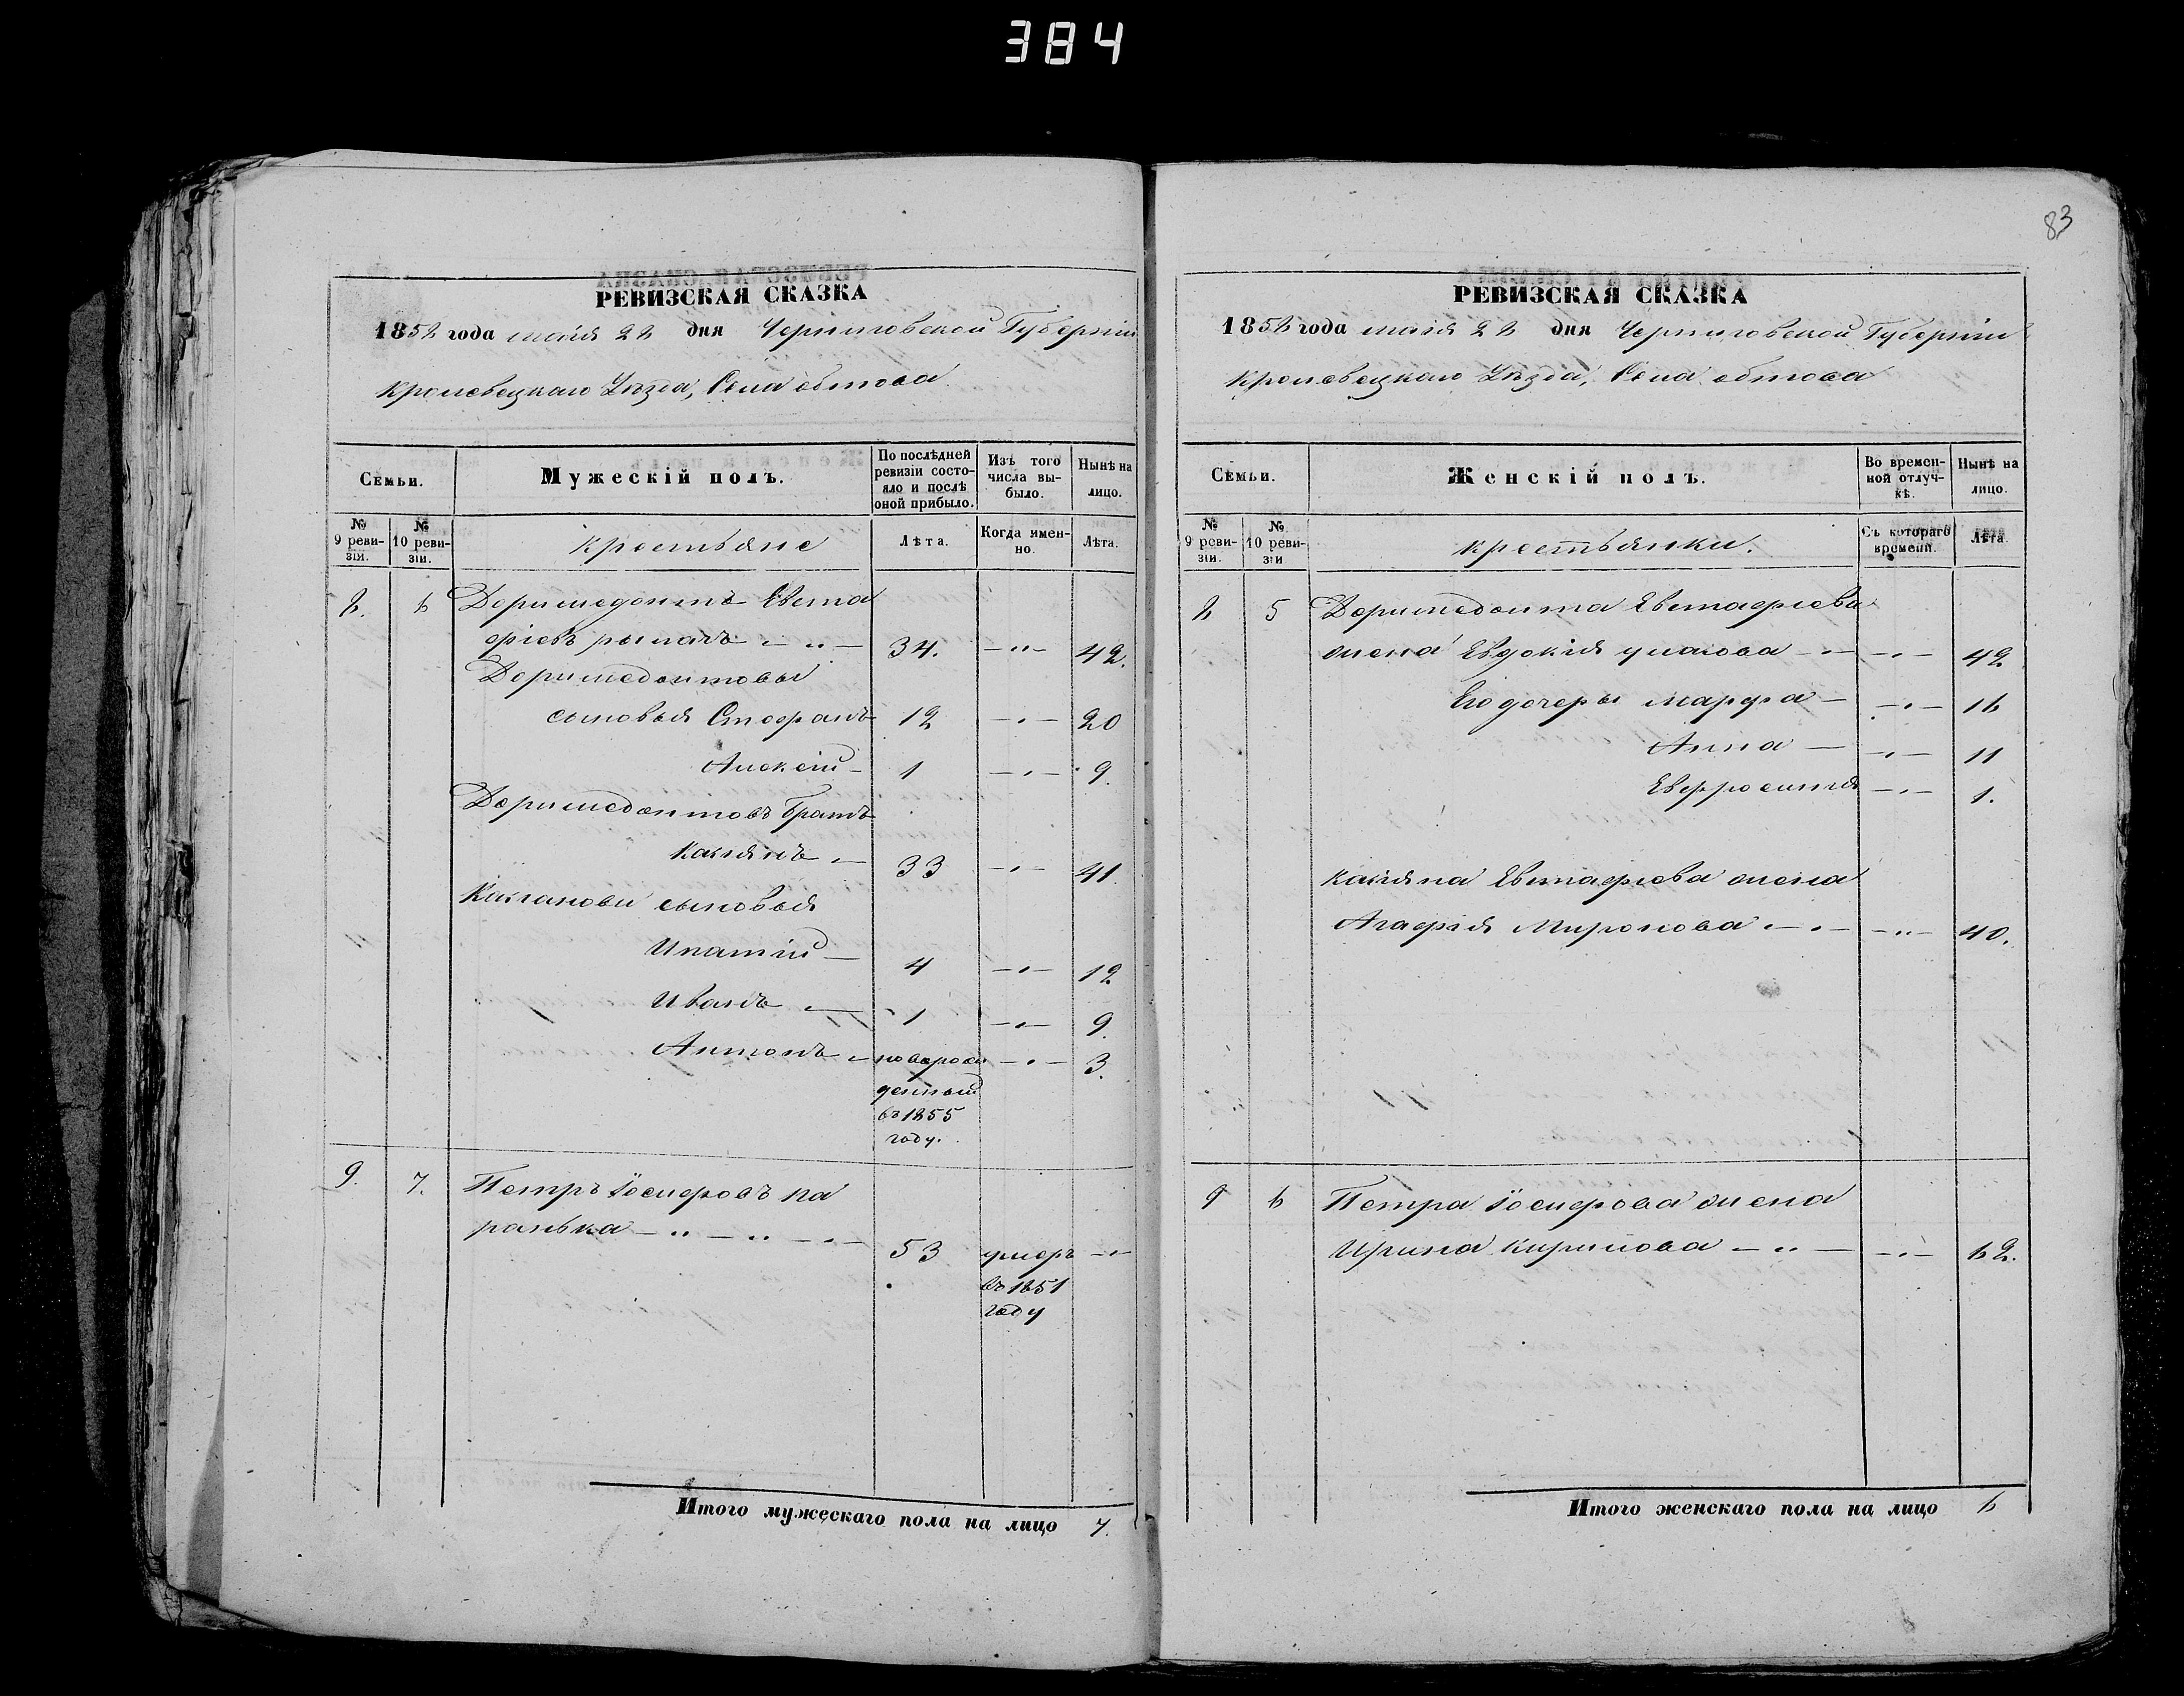 384
83
РЕВИЗСКАЯ СКАЗКА
1858 года мая 28 дня Черниговской Губерніи
Кролевецкаго Уѣзда, Села обтова
Семьи.
Мужескій полъ.
По послѣдней ревизіи состояло и послѣ оной прибыло.
Изъ того числа выбыло.
Нынѣ на лицо.
№ 9 ревизіи.
№ 10 ревизіи.
крестьяне
Лѣта.
Когда именно.
Лѣта.
8. 6 Доримедонтъ Евста
фіевъ 34. 42.
Доримедонтовы
сыновья Стефанъ 12 20
Алексій 1 9.
Доримедонтовъ братъ
Касіянъ 33 41.
Касіановы сыновья
Ипатій 4 12
Иванъ 1 9.
Антонъ новорож 3.
денный
въ 1855
году.
9. 7. Петръ Іосифовъ па
ранька 53 умеръ
въ 1851
году
Итого мужескаго пола на лицо 7.
РЕВИЗСКАЯ СКАЗКА
1858 года мая 28 дня Черниговской Губерніи
Кролевецкаго Уѣзда, Села обтова
Семьи.
Женскій полъ.
Во временной отлучкѣ.
Нынѣ на лицо.
№ 9 ревизіи.
№ 10 ревизіи
крестьянки.
Съ котораго времени.
Лѣта.
8 5 Доримедонта Евстафіева
жена Евдокія 42
Его дочеры Марфа 16
Анна 11
Евфросинія 1.
Касіяна Евстафіева жена
Агафія Миронова 40.
9 6 Петра Іосифова жена
Ирина Кирилова 62.
Итого женскаго пола на лицо 6